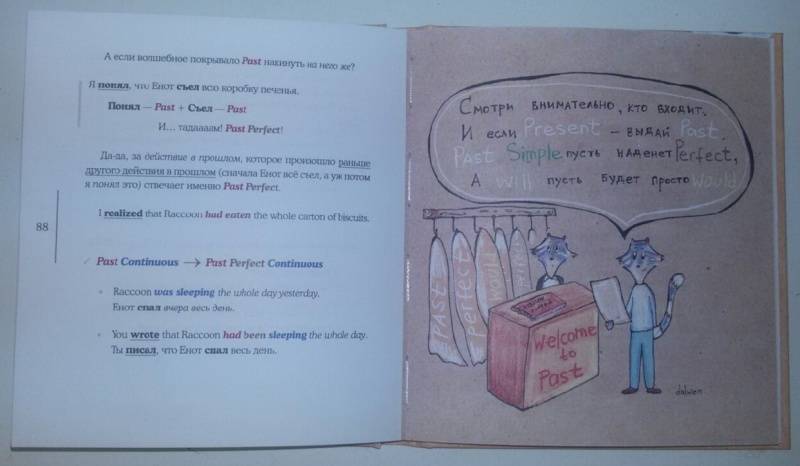 А если волшебное покрывало Past накинуть на него же?
Я понял, что Енот съел всю коробку печенья.
Понял — Past + Съел — Past
И… тадаааам! Past Perfect!
Да-да, за действие в прошлом, которое произошло раньше
другого действия в прошлом (сначала Енот всё съел, а уж потом
я понял это) отвечает именно Past Perfect.
I realized that Raccoon had eaten the whole carton of biscuits.
88
✓ Past Continuous → Past Perfect Continuous
• Raccoon was sleeping the whole day yesterday.
Енот спал вчера весь день.
• You wrote that Raccoon had been sleeping the whole day.
Ты писал, что Енот спал весь день.
Смотри внимательно, кто входит.
И если Present – выдай Past.
Past Simple пусть наденет Perfect,
А will пусть будет просто would
Past
Perfect
Would
Welcome
to
Past
dalwen